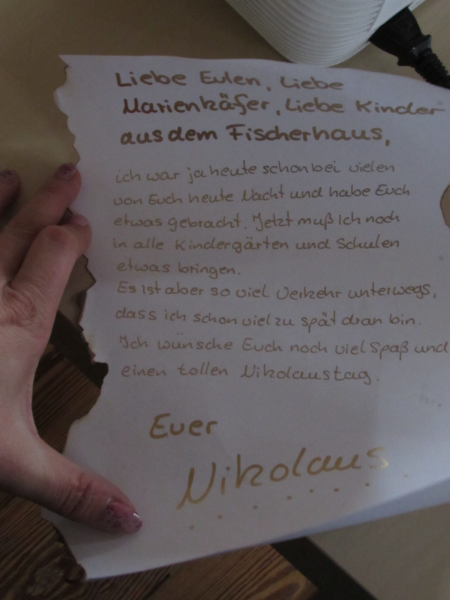 Liebe Eulen, Liebe
Marienkäfer, Liebe Kinder
aus dem Fischerhaus,
ich war ja heute schon bei vielen
von Euch heute Nacht und habe Euch
etwas gebracht. Jetzt muß ich noch
in alle Kindergärten und Schulen
etwas bringen.
Es ist aber so viel Verkehr unterwegs,
dass ich schon viel zu spät dran bin.
Ich wünsche Euch noch viel Spaß und
einen tollen Nikolaustag.
Euer
Nikolaus